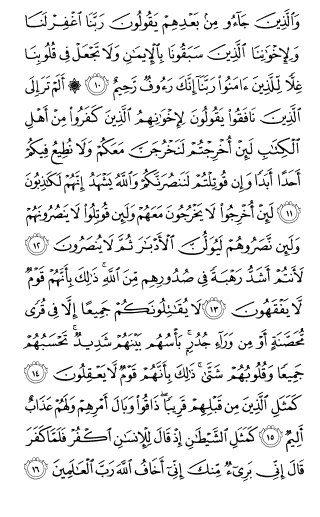 وَٱلَّذِينَ جَآءُو مِنۢ بَعْدِهِمْ يَقُولُونَ رَبَّنَا ٱغْفِرْ لَنَا
وَلِإِخْوَٰنِنَا ٱلَّذِينَ سَبَقُونَا بِٱلْإِيمَٰنِ وَلَا تَجْعَلْ فِى قُلُوبِنَا
غِلًّا لِّلَّذِينَ ءَامَنُوا۟ رَبَّنَآ إِنَّكَ رَءُوفٌ رَّحِيمٌ ١٠ ۞ أَلَمْ تَرَ إِلَى
ٱلَّذِينَ نَافَقُوا۟ يَقُولُونَ لِإِخْوَٰنِهِمُ ٱلَّذِينَ كَفَرُوا۟ مِنْ أَهْلِ
ٱلْكِتَٰبِ لَئِنْ أُخْرِجْتُمْ لَنَخْرُجَنَّ مَعَكُمْ وَلَا نُطِيعُ فِيكُمْ
أَحَدًا أَبَدًا وَإِن قُوتِلْتُمْ لَنَنصُرَنَّكُمْ وَٱللَّهُ يَشْهَدُ إِنَّهُمْ لَكَٰذِبُونَ
١١ لَئِنْ أُخْرِجُوا۟ لَا يَخْرُجُونَ مَعَهُمْ وَلَئِن قُوتِلُوا۟ لَا يَنصُرُونَهُمْ
وَلَئِن نَّصَرُوهُمْ لَيُوَلُّنَّ ٱلْأَدْبَٰرَ ثُمَّ لَا يُنصَرُونَ ١٢
لَأَنتُمْ أَشَدُّ رَهْبَةً فِى صُدُورِهِم مِّنَ ٱللَّهِ ۚ ذَٰلِكَ بِأَنَّهُمْ قَوْمٌ
لَّا يَفْقَهُونَ ١٣ لَا يُقَٰتِلُونَكُمْ جَمِيعًا إِلَّا فِى قُرًى
مُّحَصَّنَةٍ أَوْ مِن وَرَآءِ جُدُرٍۭ ۚ بَأْسُهُم بَيْنَهُمْ شَدِيدٌ ۚ تَحْسَبُهُمْ
جَمِيعًا وَقُلُوبُهُمْ شَتَّىٰ ۚ ذَٰلِكَ بِأَنَّهُمْ قَوْمٌ لَّا يَعْقِلُونَ ١٤
كَمَثَلِ ٱلَّذِينَ مِن قَبْلِهِمْ قَرِيبًا ۖ ذَاقُوا۟ وَبَالَ أَمْرِهِمْ وَلَهُمْ عَذَابٌ
أَلِيمٌ ١٥ كَمَثَلِ ٱلشَّيْطَٰنِ إِذْ قَالَ لِلْإِنسَٰنِ ٱكْفُرْ فَلَمَّا كَفَرَ
قَالَ إِنِّى بَرِىٓءٌ مِّنكَ إِنِّىٓ أَخَافُ ٱللَّهَ رَبَّ ٱلْعَٰلَمِينَ ١٦